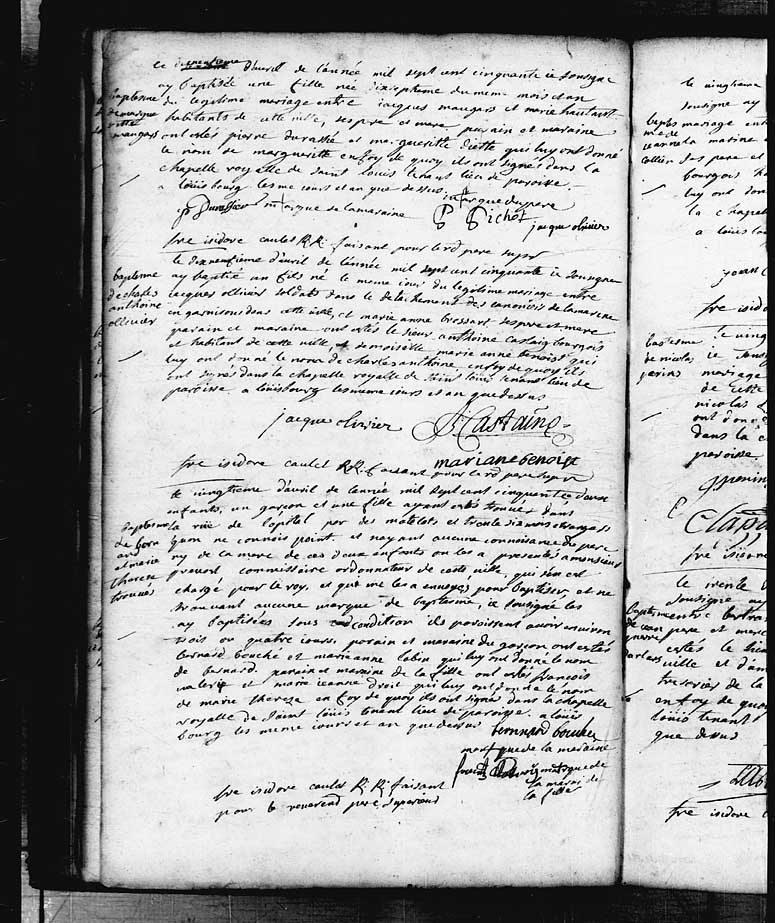 Le dixneufieme d'avril de l'année mil sept cent cinquante ie sousigné
ay baptisée une fille née dixseptieme du meme mois et an
du legitime mariage entre iacques maugars et marie
habitants de cette ville, ses pere et mere parain et maraine
ont estés pierre durassié et margueritte diotte qui luy ont donné
le nom de margueritte en foy de quoy ils ont signés dans la
chapelle royalle de saint louis tenant lieu de paroisse
a louisbourg les meme iours et an que dessus
baptesme
maugars
marque du pere
P Durassier marque de la maraine
P Pichot
jaque olivier
fre isidore caulet R.R. faisant pour le rd pere supr
le dixneufieme d'avril de l'année mil sept cent cinquante ie sousigné
ay baptisé un fils né le meme iour du legitime mariage entre
iacques ollivier soldats dans le detachement des canoniers de la marine
en garnisons dans cette ville, et marie anne brossart ses pere et mere
parain et maraine ont estés le sieur anthoine castaing bourgois
et habitant de cette ville et demoiselle marie anne benoist qui
luy ont donné le nom de charles anthoine en foy de quoy ils
ont signés dans la chapelle royalle de saint louis tenant lieu de
paroisse a louisbourg les meme iours et an que dessus
baptesme
de charles
anthoine
ollivier
jacque olivier
A Castaing
mariane benoist
fre isidore caulet R.R. faisant pour le rd pere supr
le vingtieme d'avril de l'année mil sept cent cinquante deux
enfants, un garçon et une fille ayans estés trouvés dans
la rüe de l'opital par des matelots et
qu'on ne connois point et n'ayant aucune connoisance du pere
ny de la mere de ces deux enfants on les a presentés a monsieur
prevost commissaire ordonnateur de cette ville, qui s'en est
chargé pour le roy, et qui me les a envoyés pour baptiser, et ne
trouvant aucune marque de baptesme, ie sousigné les
ay baptisées sous condition ils paroissent avoir environ
trois ou quatre iours, parain et maraine du garçon ont estés
bernard bouché et marie anne lobin qui luy ont donné le nom
de bernard parain et maraine de la fille ont estés francois
valerie et marie ieanne droit qui luy ont donné le nom
de marie thereze en foy de quoy ils ont signés dans la chapelle
royalle de saint louis tenant lieu de paroisse a louis
bourg les meme iours et an que dessus
baptesme
de bern
ard
et marie
thereze
trouvés
bernard bouché
marque de la maraine
marque de
la marai ne
la fille
fre isidore caulet R. R. faisant
pour le reverend pere superieur
le vingtieme
sousigne ay
mariage ent
la marine a
ses pere et
bourgois ha
luy ont don
la chapel
a louisbou
baptes
me de
ieanne
collier
jean C
fre isido
le ving
ie sous
mariage
de cette
nicolas
ont donné
dans la c
paroisse
baptesme
de nicolas
perins
fre isidore
le trente
sousigné ay
entre bertran
pere et mere
estés le sieu
ville et d'am
tresorier de la
en foy de quoy
louis tenant
que dessus
baptesme
de iean
pierre
fre isidore c